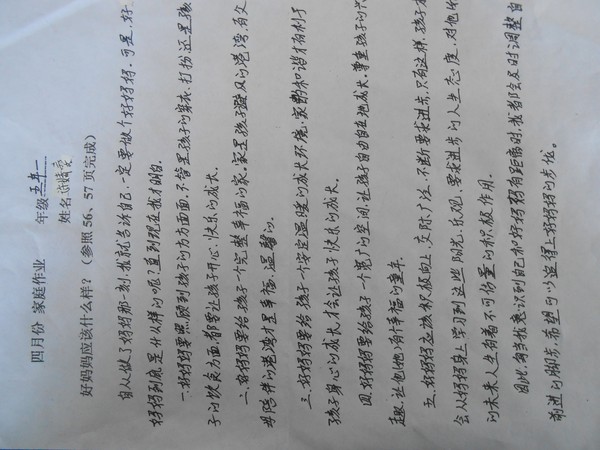 四月份 家庭作业 年级 五年一
姓名
好妈妈应该什么样？（参照56、57页完成）
自从做了妈妈那一刻，我就告诉自己，一定要做个好妈妈，可是，好
妈妈到底是什么样的呢？直到现在我才明白。
一、好妈妈要照顾到孩子的方方面面，不管是孩子的穿衣、打扮还是孩
子的饮食方面，都要让孩子开心、快乐的成长。
二、好妈妈要给孩子一个完整幸福的家，家是孩子避风的港湾，有父
母陪伴的港湾才是幸福，温馨的。
三、好妈妈要给孩子一个安定温暖的成长环境，家庭和谐才有利于
孩子身心的成长，才能让孩子快乐的成长。
四、好妈妈要给孩子一个宽广的空间，让孩子自由自在地成长，尊重孩子的兴
趣，让他拥有幸福的童年。
五、好妈妈应该积极向上，交际广泛，不断要求进步，只有这样，孩子才
会从妈妈身上学习到这些阳光、乐观、要求进步的人生态度，对他们
的未来人生有着不可估量的积极作用。
因此，每当我意识到自己和好妈妈有距离时，我都会及时调整自
前进的脚步，希望可以追得上好妈妈的步伐。